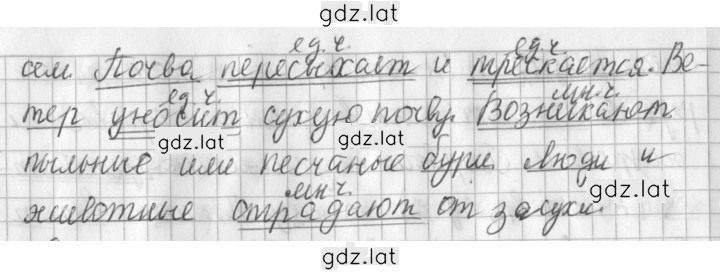 gdz.lat
ед.ч. ед.ч.
сем. Почва пересыхает и трескается. Ве-
ед.ч. мн.ч.
тер уносит сухую почву. Возникают
gdz.lat
пыльные или песчаные бури. Люди и
мн.ч. gdz.lat
животные страдают от засухи.
gdz.lat